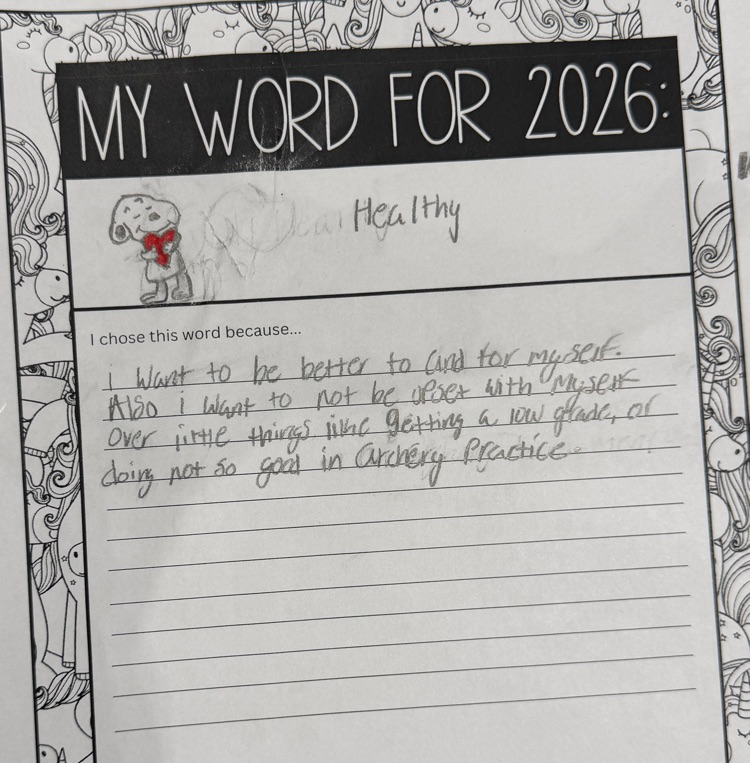 MY WORD FOR 2026:
Healthy
I chose this word because...
i Want to be better to and for myself.
Also i want to not be upset with Myself
Over little things like getting a low grade, or
doing not so good in archery Practice.